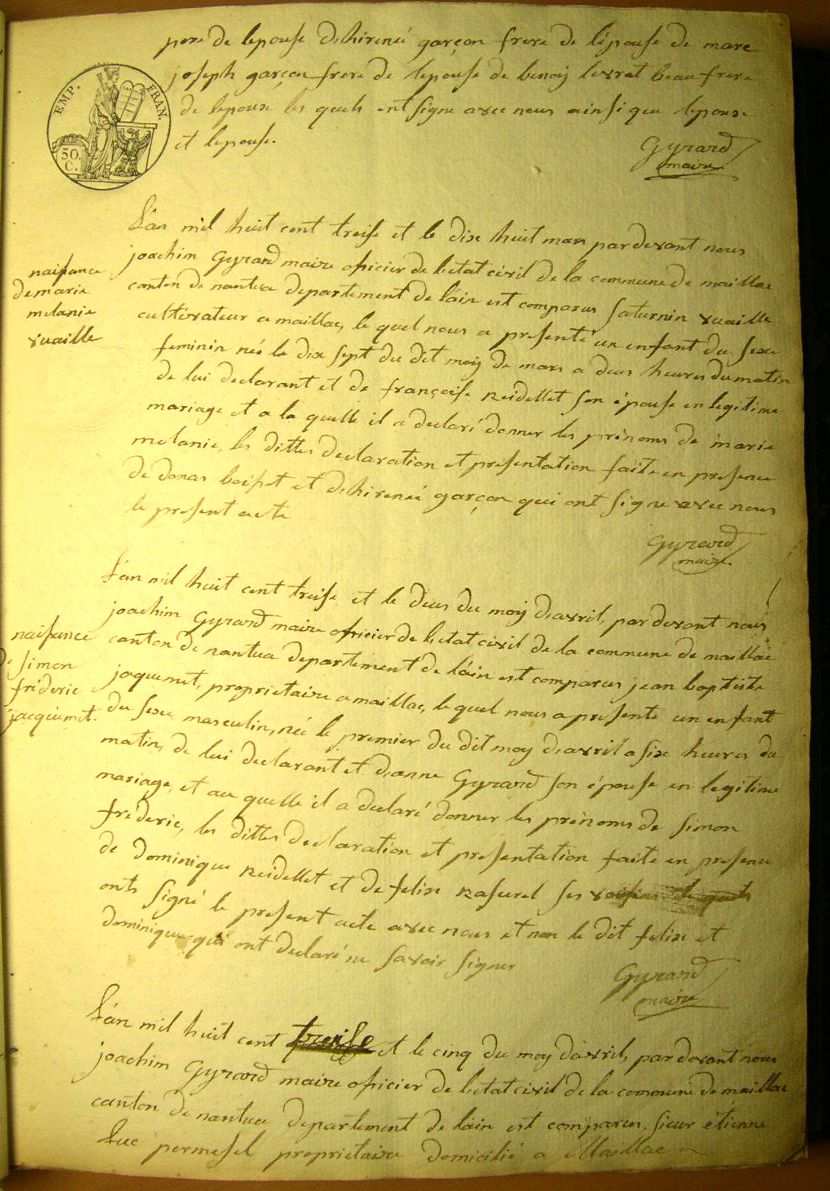 pere de lepouse dehirené garçon frere de lépouse de marc
joseph garçon frere de lepouse de benoiy levrat beaufrere
de lepouse les quels ont signé avec nous ainsi que lepoux
et lepouse.
EMP. FRAN.
50. C.
Gyrard
maire
L'an mil huit cent treise et le dix huit mars pardevant nous
joachim Gyrard maire oficier de letat civil de la commune de maillac
canton de nantua departement de lain est comparus saturnin vuaille
cultivateur a maillac, le quel nous a presenté un enfant du sexe
feminin née le dix sept du dit moy de mars a deus heures du matin
de lui declarant et de françoise reidellet son épouse en legitime
mariage et a la quelle il a declaré donner les prénoms de marie
melanie, les dittes declaration et presentation faite en presence
de donas et dehirené garçon qui ont signé avec nous
le present acte
naissance
de marie
melanie
vuaille
Gyrard
maire
L'an mil huit cent treise et le deus du moy davril, pardevant nous
joachim Gyrard maire oficier de letat civil de la commune de maillac
canton de nantua departement de lain est comparus jean baptiste
jaquemet, proprietaire a maillac, le quel nous a presenté un enfant
du sexe masculin, née le premier du dit moy davril a six heures du
matin, de lui declarant et danne Gyrard son épouse en legitime
mariage, et au quelle il a declaré donner les prénoms de Simon
frederic, les dittes declaration et presentation faite en presence
de dominique reidellet et de felix rafurel ses
onts signé le present acte avec nous et non le dit felix et
dominique qui ont declaré ne savoir signer
naissance
de Simon
fréderic
jacquemet.
Gyrard
maire
L'an mil huit cent treise et le cinq du moy davril, pardevant nous
joachim Gyrard maire oficier de letat civil de la commune de maillac
canton de nantua departement de lain est comparus, sieur étienne
Luc permesel proprietaire domicilié a Maillac